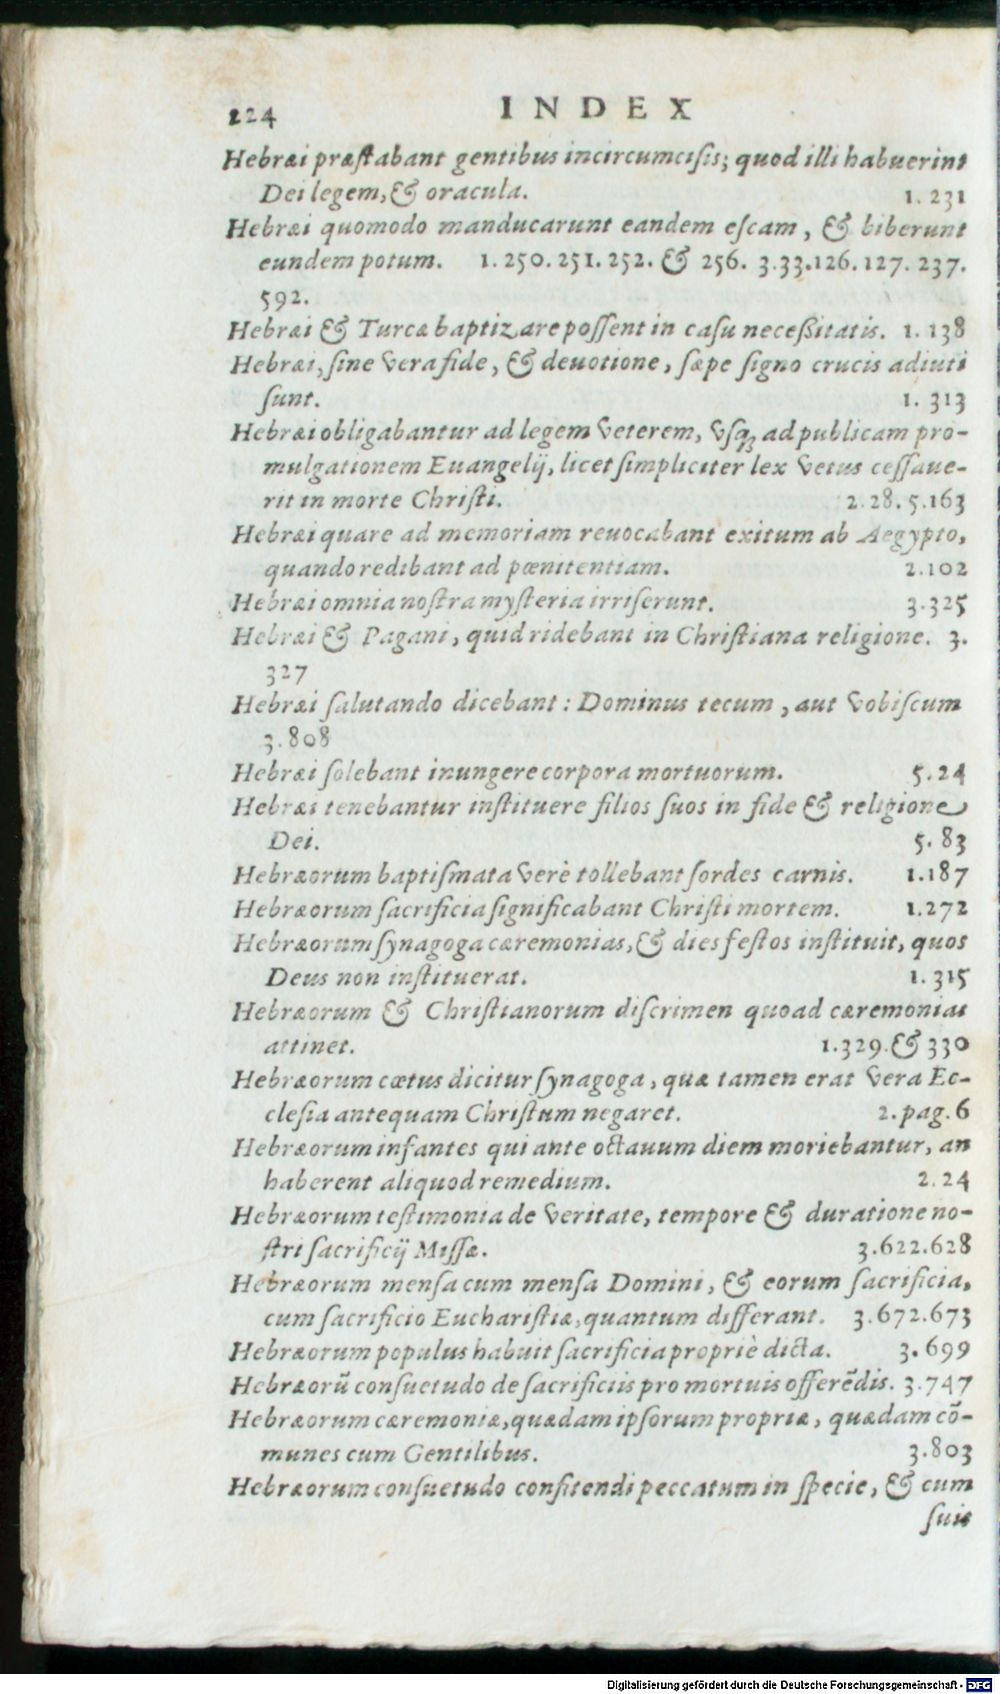 224 INDEX
Hebræi præstabant gentibus incircumcisis; quod illi habuerint
Dei legem, & oracula. 1. 231
Hebræi quomodo manducarunt eandem escam, & biberunt
eundem potum. 1. 250. 251. 252. & 256. 3.33.126. 127. 237.
592.
Hebræi & Turcæ baptizare possent in casu necessitatis. 1. 138
Hebræi, sine vera fide, & deuotione, sæpe signo crucis adiuti
sunt. 1. 313
Hebræi obligabantur ad legem veterem, vsq; ad publicam pro-
mulgationem Euangelij, licet simpliciter lex vetus cessaue-
rit in morte Christi. 2. 28. 5. 163
Hebræi quare ad memoriam reuocabant exitum ab Aegypto,
quando redibant ad pœnitentiam. 2.102
Hebræi omnia nostra mysteria irriserunt. 3.325
Hebræi & Pagani, quid ridebant in Christiana religione. 3.
327
Hebræi salutando dicebant: Dominus tecum, aut vobiscum
3. 808
Hebræi solebant inungere corpora mortuorum. 5. 24
Hebræi tenebantur instituere filios suos in fide & religione
Dei. 5. 83
Hebræorum baptismata verè tollebant sordes carnis. 1.187
Hebræorum sacrificia significabant Christi mortem. 1.272
Hebræorum synagoga cæremonias, & dies festos instituit, quos
Deus non instituerat. 1. 315
Hebræorum & Christianorum discrimen quoad cæremonias
attinet. 1.329. & 330
Hebræorum cœtus dicitur synagoga, quæ tamen erat vera Ec-
clesia antequam Christum negaret. 2. pag. 6
Hebræorum infantes qui ante octauum diem moriebantur, an
haberent aliquod remedium. 2. 24
Hebræorum testimonia de veritate, tempore & duratione no-
stri sacrificij Missæ. 3.622.628
Hebræorum mensa cum mensa Domini, & eorum sacrificia,
cum sacrificio Eucharistiæ, quantum differant. 3.672.673
Hebræorum populus habuit sacrificia propriè dicta. 3. 699
Hebræorū consuetudo de sacrificiis pro mortuis offerēdis. 3.747
Hebræorum cæremoniæ, quædam ipsorum propriæ, quædam cō-
munes cum Gentilibus. 3.803
Hebræorum consuetudo confitendi peccatum in specie, & cum
suis
Digitalisierung gefördert durch die Deutsche Forschungsgemeinschaft - DFG